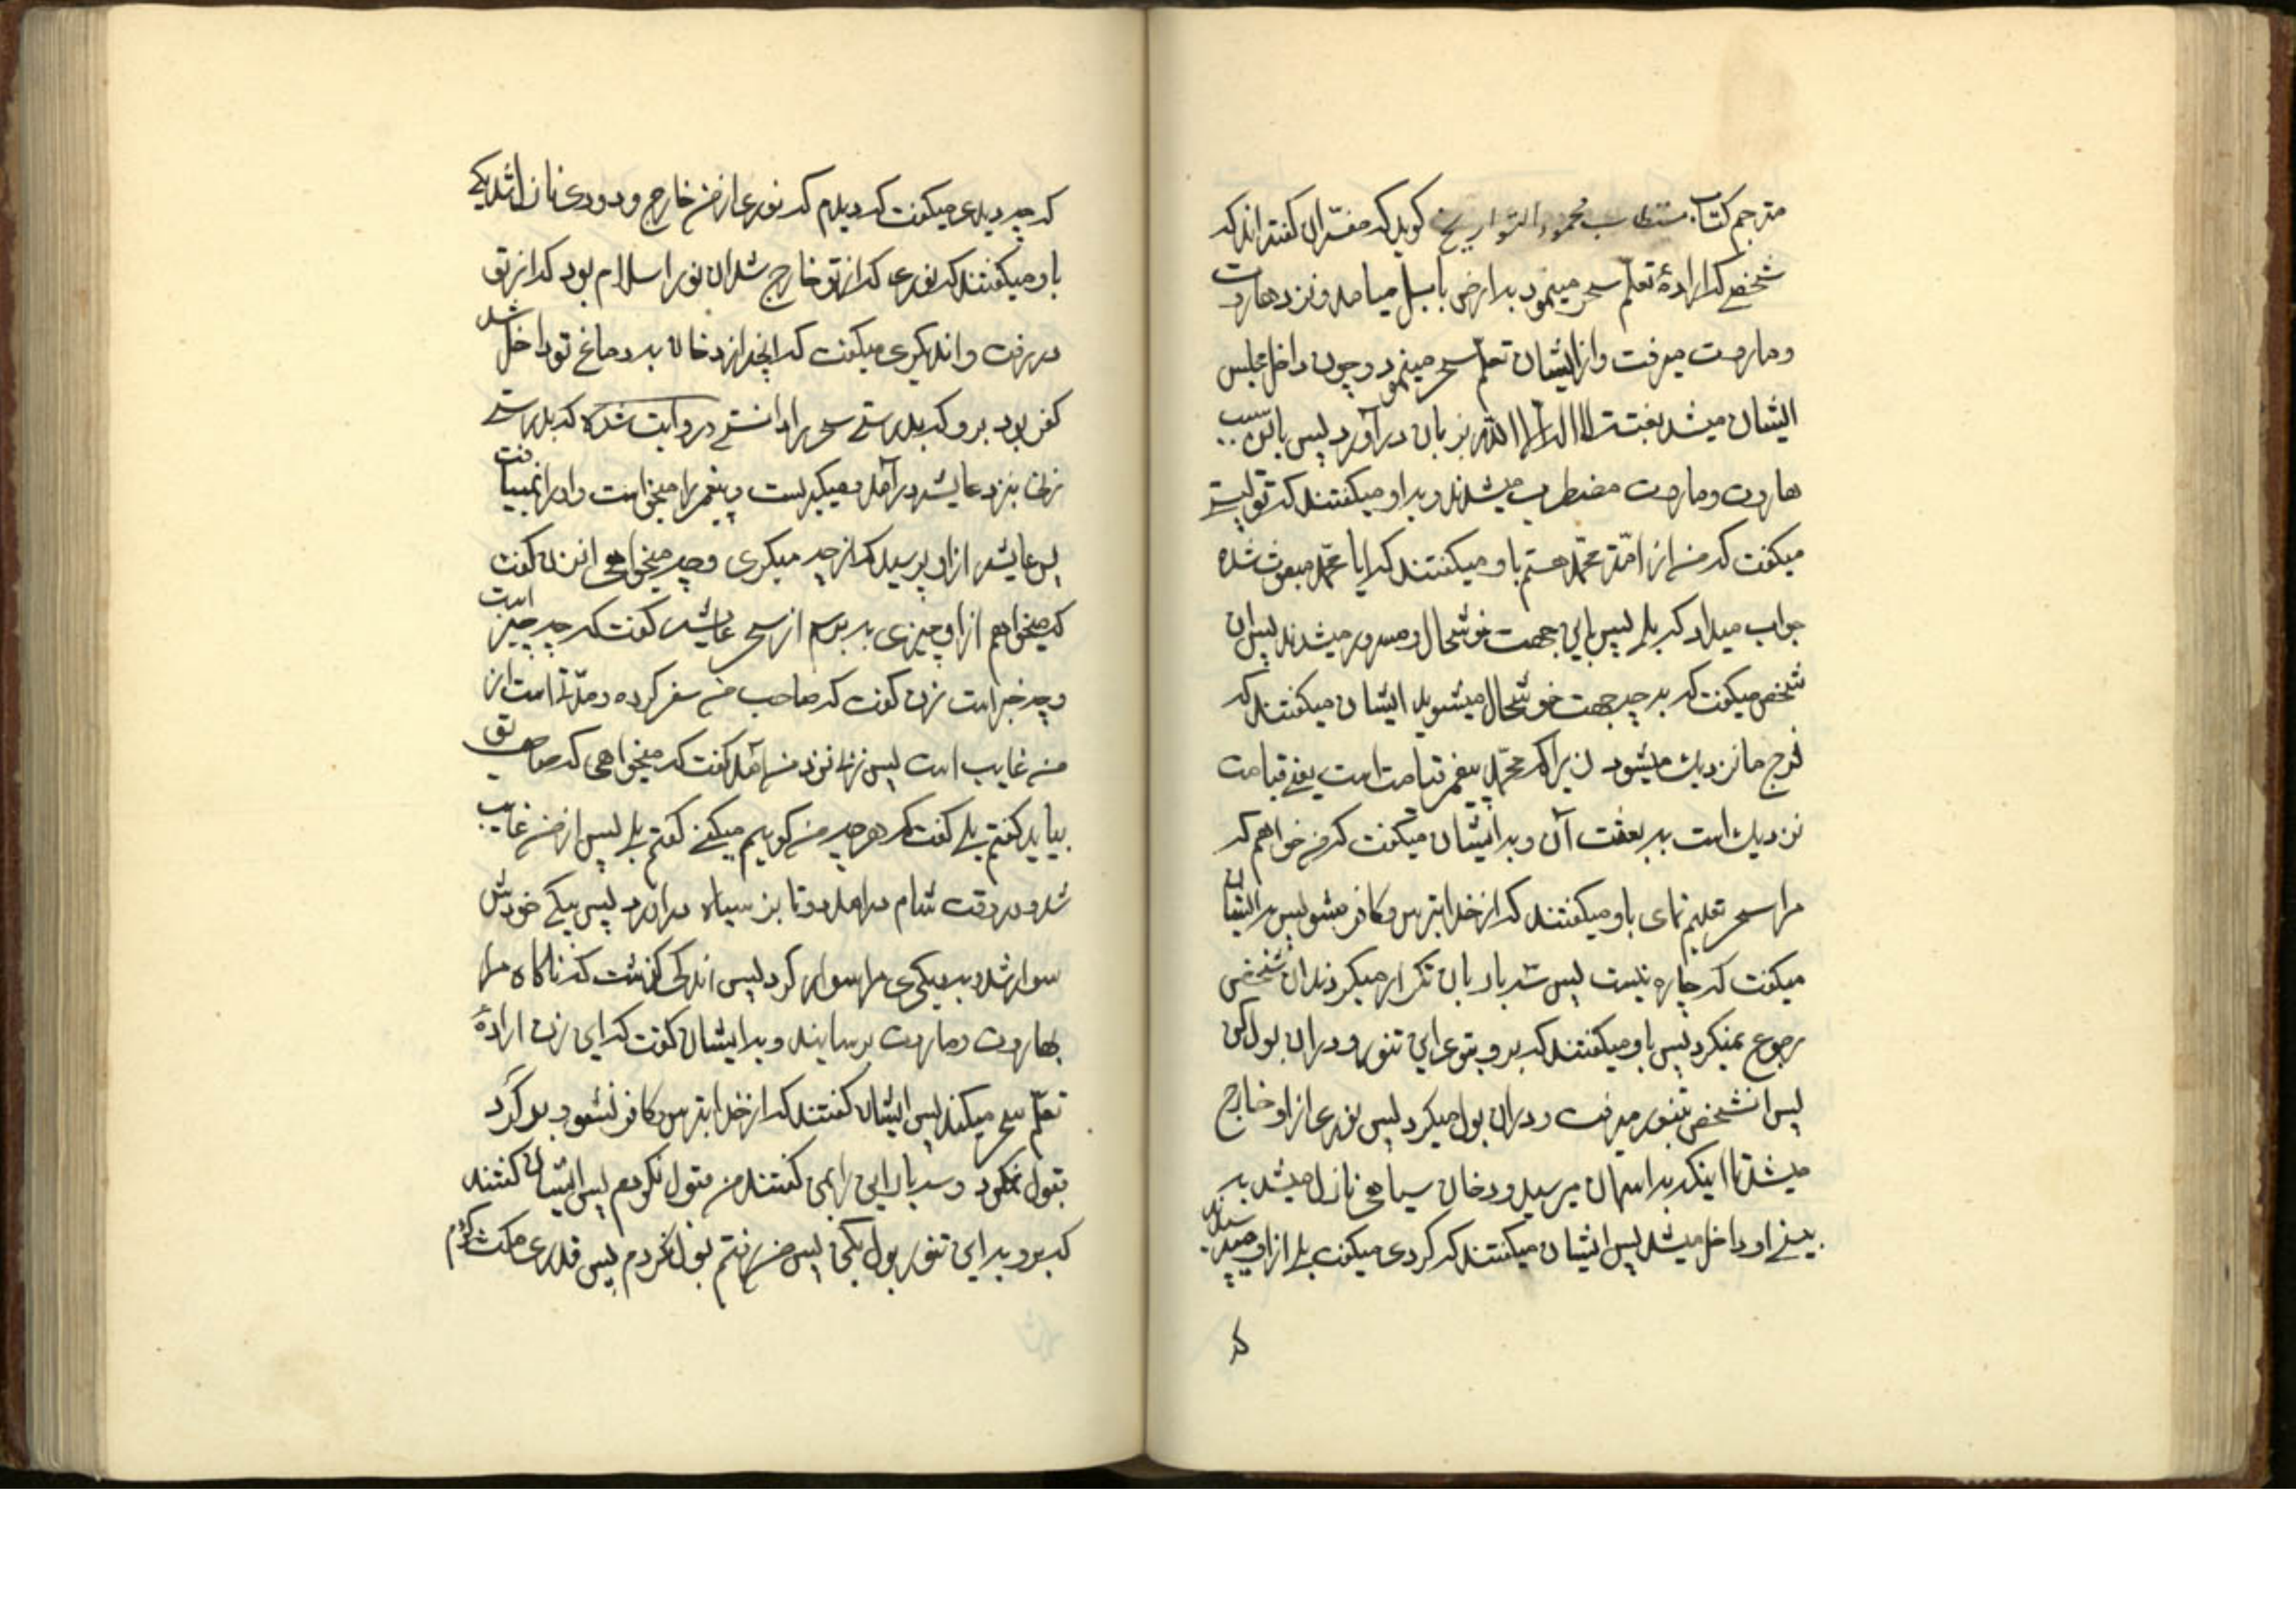 مترجم کتاب مستطاب محمود التواریخ کوید که مفسّران کفته‌اند که
شخصی که ارادهٔ تعلّم سحر مینمود بدارض بابل میامد و نزد هاروت
و ماروت میرفت و از ایشان تعلّم سحر مینمود و چون داخل مجلس
ایشان میشد بغتت لا اله الا الله بزبان در آورد پس باین سبب
هاروت و ماروت مضطرب میشدند و بداو میکفتند که تو کیستی
میکفت که من از امّت محمّد هستم باو میکفتند که ایا محمّد مبعوث شده
جواب میداد که بلی پس باین جهت خوشحال و مسرور میشدند پس ان
شخص میکفت که بد چه جهت خوشحال میشوید ایشان میکفتند که
فرج ما نزدیک میشود زیرا که محمّد پیغمبر قیامت است یعنی قیامت
نزدیک است بد بعثت آن و بدایشان میکفت که من خواهم که
مرا سحر تعلیم نمای باو میکفتند که از خدا بترس و کافر مشو پس بدایشان
میکفت که چاره نیست پس سه بار بان تکرار میکردند ان شخص
رجوع نمیکرد پس باو میکفتند که برو بتوی این تنور و دران بول کن
پس انشخص بتنور میرفت و دران بول میکرد پس نوری از او خارج
میشد تا اینکه بداسمان میرسید و دخان سیاهی نازل میشد بد
بینی او داخل میشد پس ایشان میکفتند که کردی میکفت بلی از او میپرسیدند
که
که چه دیدی میکفت که دیدم که نوری از من خارج و دودی نازل شد یکی
باو میکفتند که نوری که از تو خارج شد ان نور اسلام بود که از تو
در رفت و اندیکری میکفت که انچه از دخان بد دماغ تو داخل شد
کفر بود برو که بدرستی سحر را دانستی در روایت شده که بدرستی
زنی بنزد عایشه درآمد و میکریست و پیغمبر را میخواست و او را نمییافت
پس عایشه از او پرسید که از چه میکری و چه میخواهی انزن کفت
که میخواهم از او چیزی بد پرسم از سحر عایشه کفت که چه چیز است
و چه خبر است زن کفت که صاحب من سفر کرده و مدّتی است از
من غایب است پس زنی نزد من آمد کفت که میخواهی که صاحب تو
بیاید کفتم بلی کفت که هر چه من کویم میکنی کفتم بلی پس از من غایب
شد و در وقت شام درامد دو تا بز سیاه دراورد پس بیکی خودش
سوار شد و بد دیکری مرا سوار کرد پس اندکی کذشت که ناکاه مرا
بهاروت و ماروت رسانید و بدایشان کفت که این زن ارادهٔ
تعلّم سحر میکند پس ایشان کفتند که از خدا بترس کافر نشو و برکرد
قبول نکرد و سه بار این را بمن کفتند من قبول نکردم پس ایشان کفتند
که برو بداین تنور بول بکن پس من رفتم بول نکردم پس قدری مکث کردم